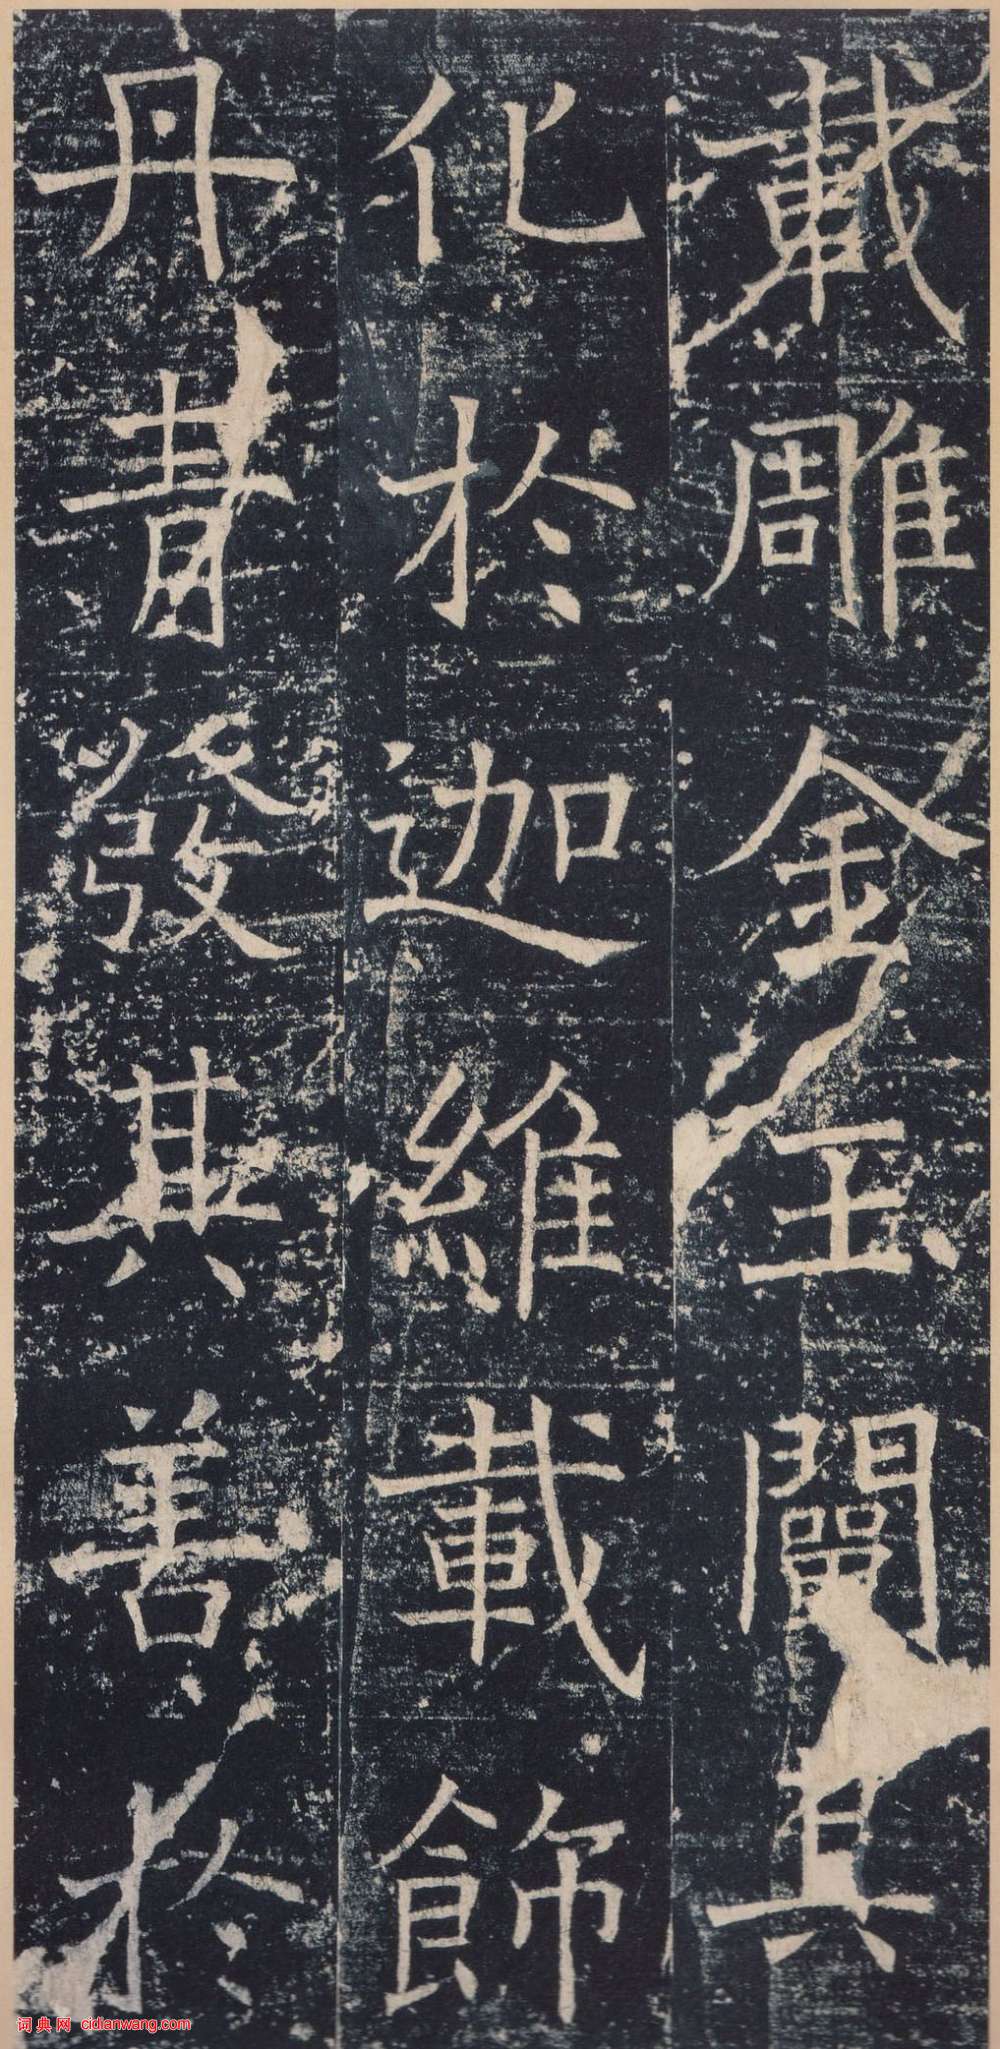 載雕金玉闡其
化於迦維載飾
丹青發其善於
词典网 cidianwang.com